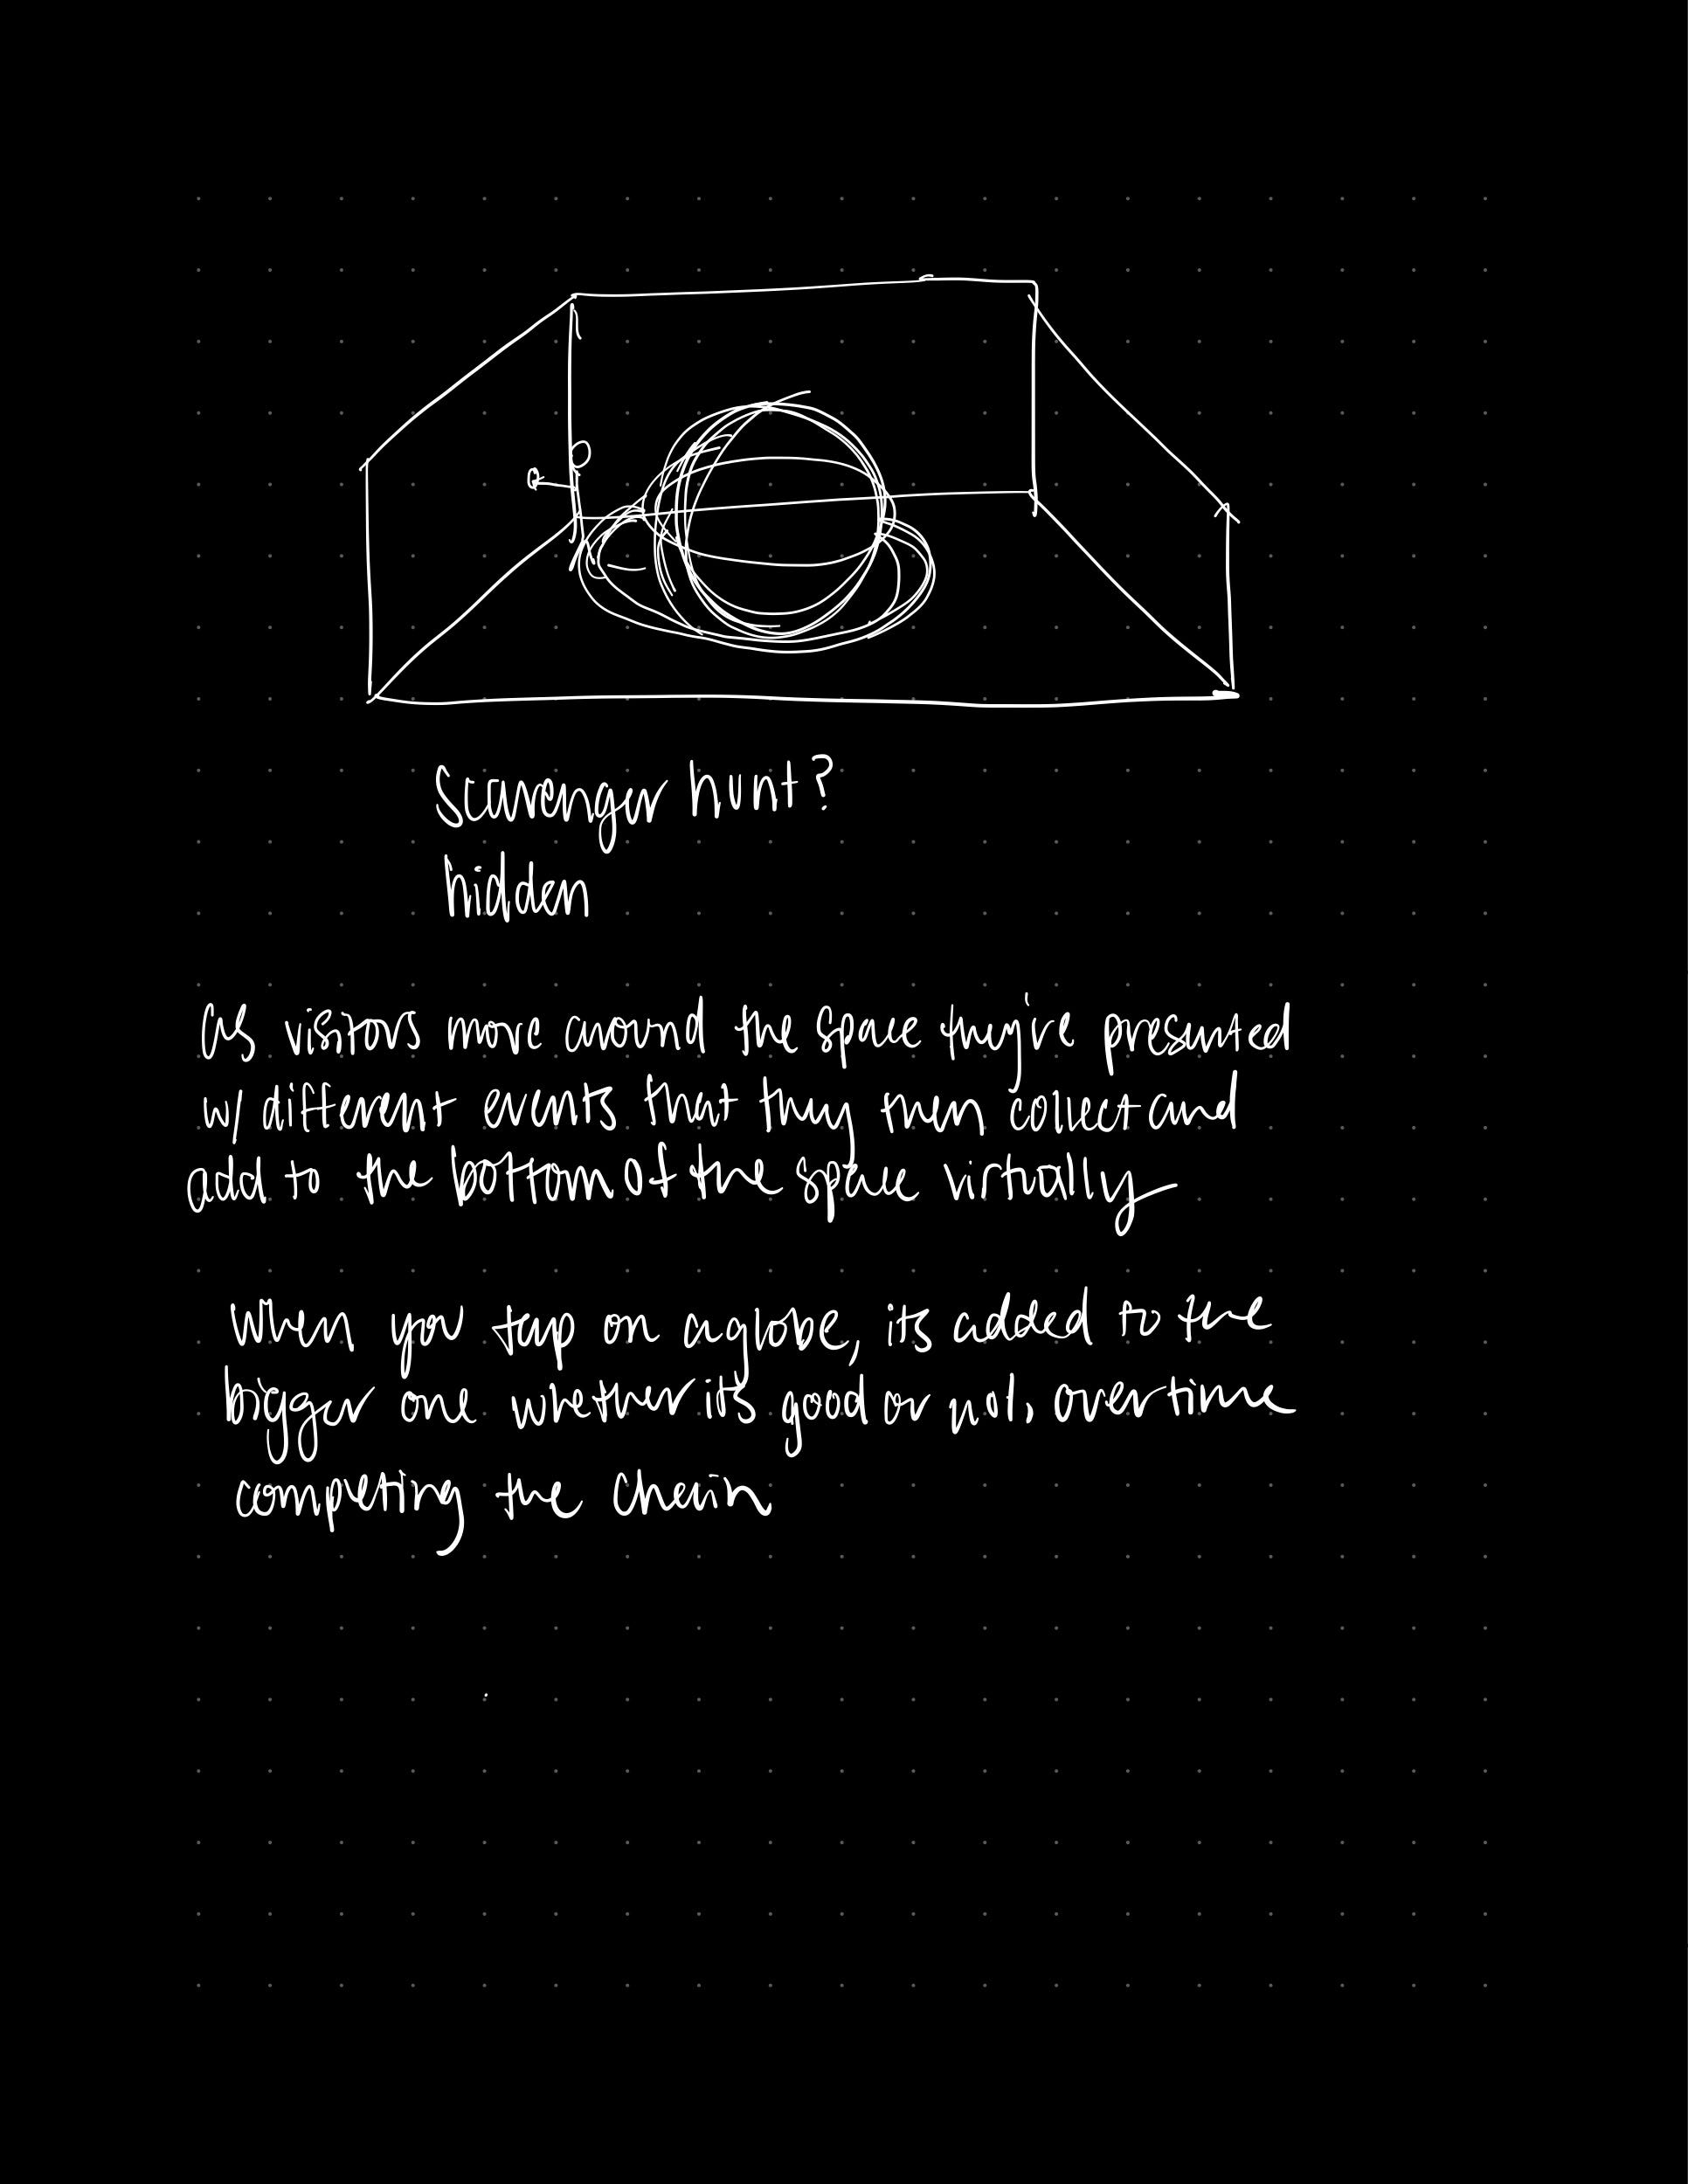 Scavenger hunt?
hidden
as visitors move around the space they're presented
w/ different events that they then collect and
add to the bottom of the space virtually
When you tap on a globe, its added to the
bigger one whether its good or not, overtime
competing the chain